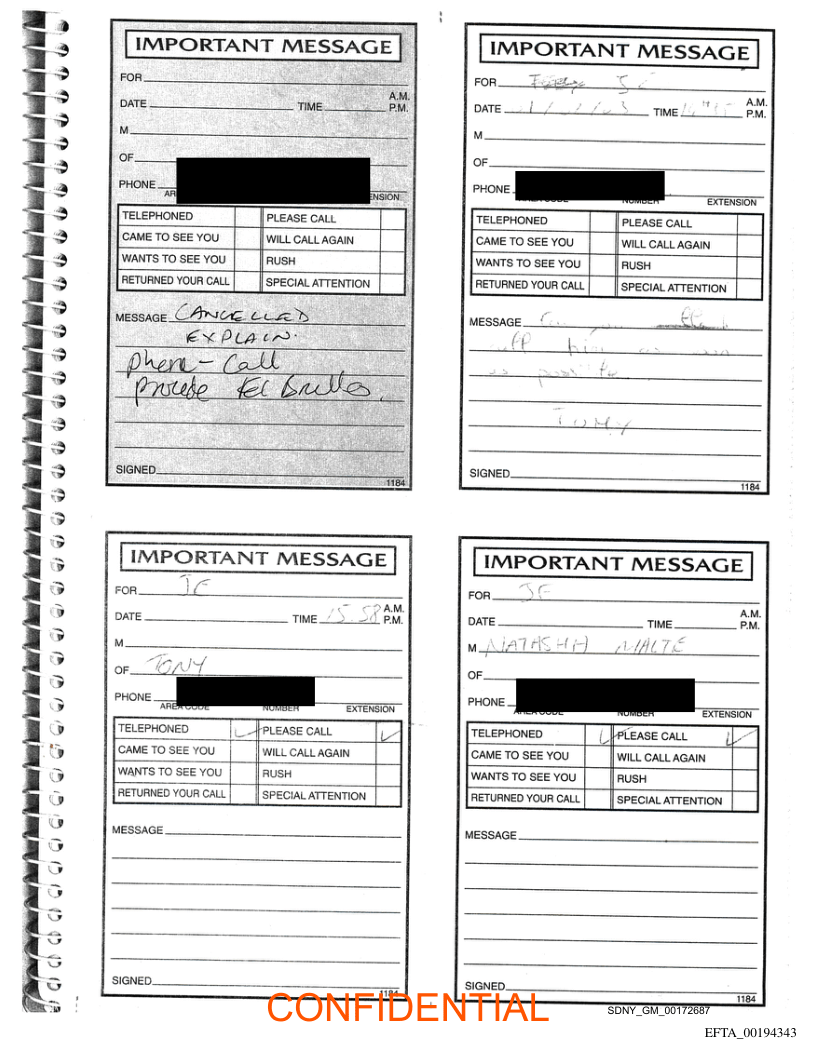 IMPORTANT MESSAGE
FOR
DATE TIME A.M. P.M.
M
OF
PHONE
AR ENSION
TELEPHONED PLEASE CALL
CAME TO SEE YOU WILL CALL AGAIN
WANTS TO SEE YOU RUSH
RETURNED YOUR CALL SPECIAL ATTENTION
MESSAGE CANCELLED
EXPLAIN.
phone - Call
SIGNED
1184
IMPORTANT MESSAGE
FOR
DATE TIME A.M. P.M.
M
OF
PHONE
AREA CODE NUMBER EXTENSION
TELEPHONED PLEASE CALL
CAME TO SEE YOU WILL CALL AGAIN
WANTS TO SEE YOU RUSH
RETURNED YOUR CALL SPECIAL ATTENTION
MESSAGE Can you
him as soon
as possible
TONY
SIGNED
1184
IMPORTANT MESSAGE
FOR JE
DATE TIME 15.58 A.M. P.M.
M
OF TONY
PHONE
AREA CODE NUMBER EXTENSION
TELEPHONED ✓ PLEASE CALL ✓
CAME TO SEE YOU WILL CALL AGAIN
WANTS TO SEE YOU RUSH
RETURNED YOUR CALL SPECIAL ATTENTION
MESSAGE
SIGNED
1184
IMPORTANT MESSAGE
FOR JE
DATE TIME A.M. P.M.
M NATASHA MALTE
OF
PHONE
AREA CODE NUMBER EXTENSION
TELEPHONED ✓ PLEASE CALL ✓
CAME TO SEE YOU WILL CALL AGAIN
WANTS TO SEE YOU RUSH
RETURNED YOUR CALL SPECIAL ATTENTION
MESSAGE
SIGNED
1184
CONFIDENTIAL
SDNY_GM_00172687
EFTA_00194343